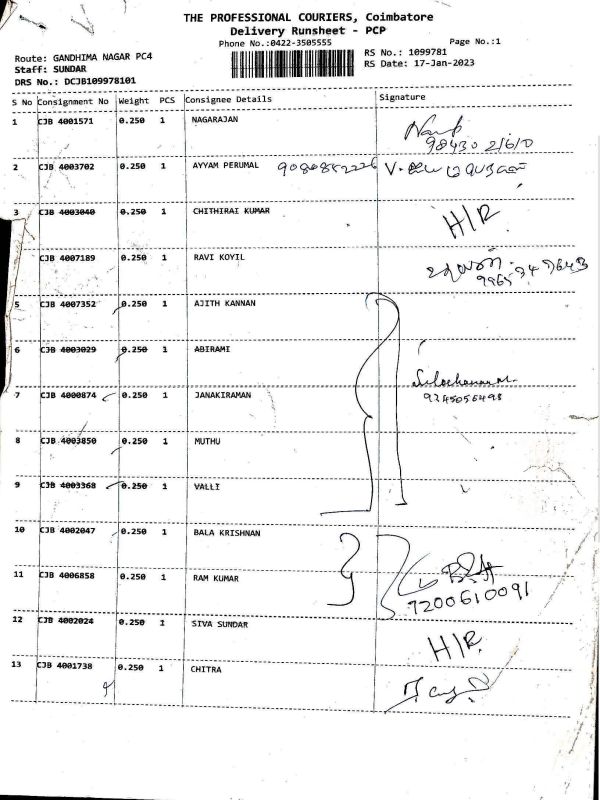 THE PROFESSIONAL COURIERS, Coimbatore
Delivery Runsheet - PCP
Phone No.:0422-3505555
Page No.:1
Route: GANDHIMA NAGAR PC4
RS No.: 1099781
Staff: SUNDAR
RS Date: 17-Jan-2023
DRS No.: DCJB109978101
S No Consignment No Weight PCS Consignee Details Signature
1 CJB 4001571 0.250 1 NAGARAJAN
2 CJB 4003702 0.250 1 AYYAM PERUMAL
3 CJB 4003040 0.250 1 CHITHIRAI KUMAR H/R
CJB 4007189 0.250 1 RAVI KOYIL
5 CJB 4007352 0.250 1 AJITH KANNAN
6 CJB 4003029 0.250 1 ABIRAMI
7 CJB 4000874 0.250 1 JANAKIRAMAN
9245056498
8 CJB 4003850 0.250 1 MUTHU
9 CJB 4003368 0.250 1 VALLI
10 CJB 4002047 0.250 1 BALA KRISHNAN
11 CJB 4006858 0.250 1 RAM KUMAR
7200610091
12 CJB 4002024 0.250 1 SIVA SUNDAR H/R
13 CJB 4001738 0.250 1 CHITRA